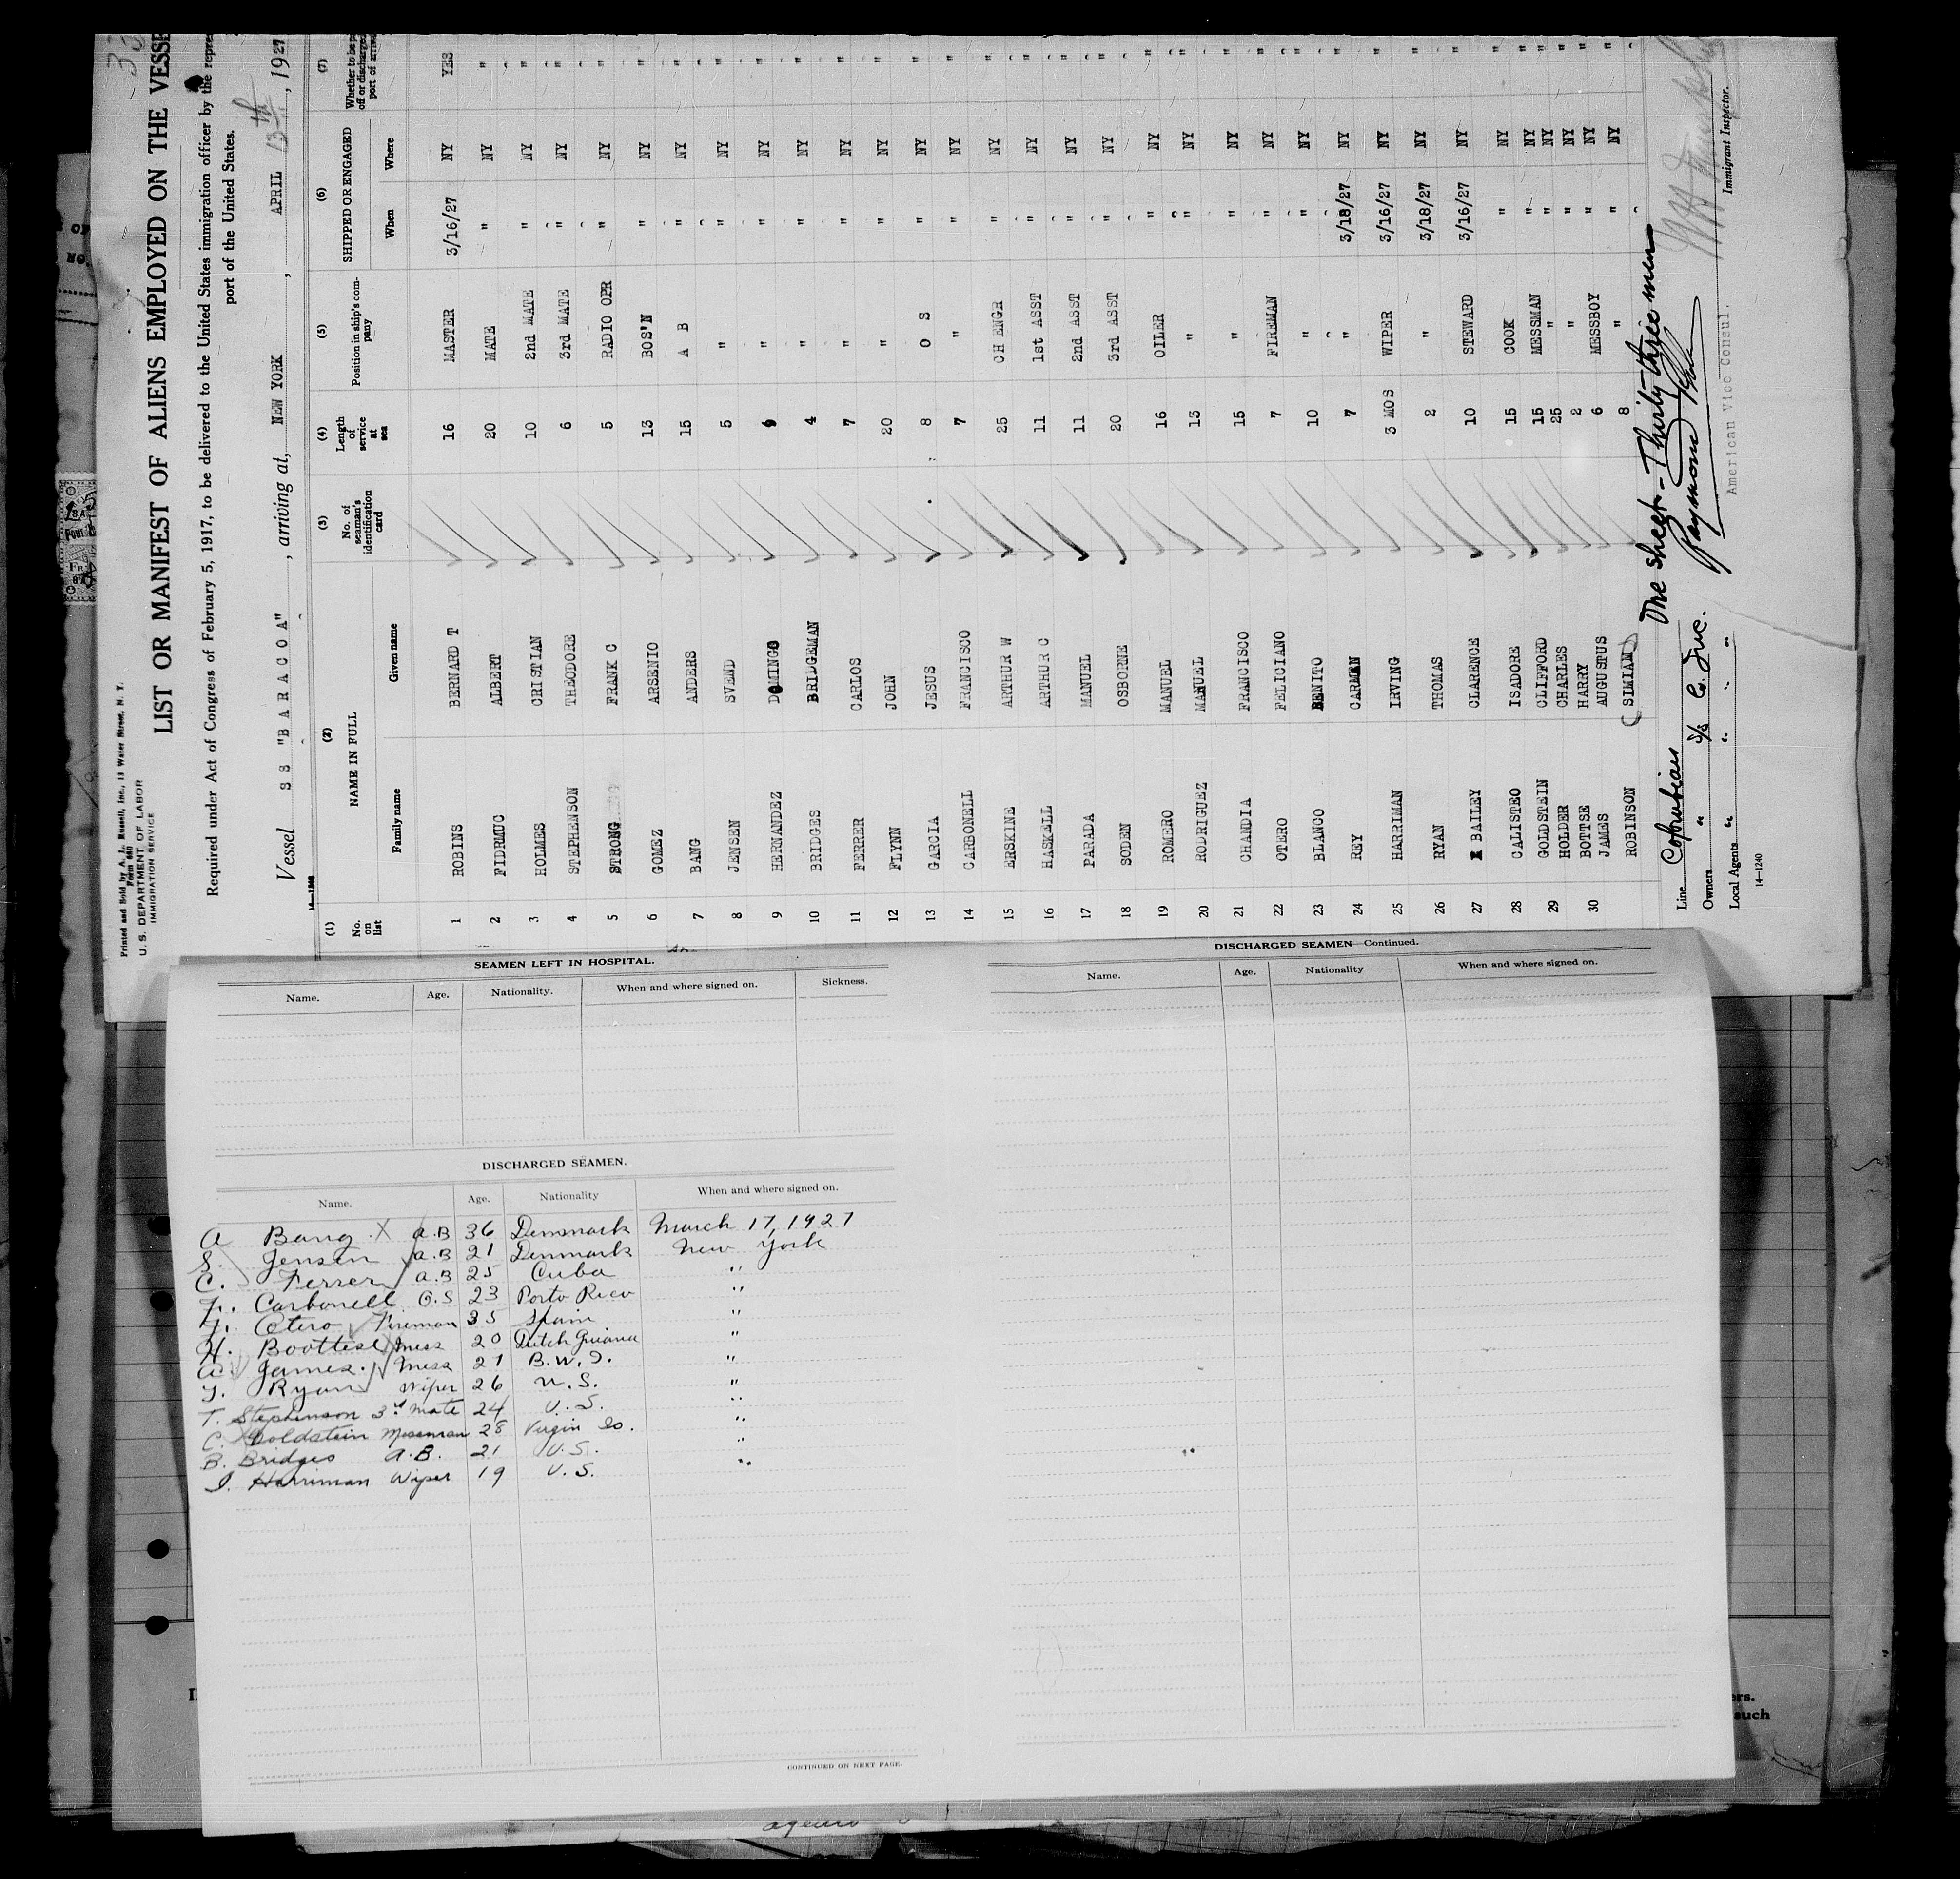 Printed and Sold by A. L. Russell, Inc., 13 Water Street, N. Y.
Form 680
U. S. DEPARTMENT OF LABOR
IMMIGRATION SERVICE
LIST OR MANIFEST OF ALIENS EMPLOYED ON THE VESSE
Required under Act of Congress of February 5, 1917, to be delivered to the United States immigration officer by the repres
port of the United States.
Vessel S S "B A R A C O A" , arriving at, NEW YORK , APRIL 13th , 1927
14-1240
(1) (2) (3) (4) (5) (6) (7)
No. on list NAME IN FULL No. of seaman's identification card Length of service at sea Position in ship's company SHIPPED OR ENGAGED Whether to be pa off or discharged port of arriva
Family name Given name When Where
1 ROBINS BERNARD T 16 MASTER 3/16/27 NY YES
2 FIDRMUC ALBERT 20 MATE " NY "
3 HOLMES CRISTIAN 10 2nd MATE " NY "
4 STEPHENSON THEODORE 6 3rd MATE " NY "
5 STRONG FRANK C 5 RADIO OPR " NY "
6 GOMEZ ARSENIO 13 BOS'N " NY "
7 BANG ANDERS 15 A B " NY "
8 JENSEN SVEND 5 " " NY "
9 HERNANDEZ DOMINGO 9 " " NY "
10 BRIDGES BRIDGEMAN 4 " " NY "
11 FERRER CARLOS 7 " " NY "
12 FLYNN JOHN 20 " " NY "
13 GARCIA JESUS 8 O S " NY "
14 CARBONELL FRANCISCO 7 " " NY "
15 ERSKINE ARTHUR W 25 CH ENGR " NY "
16 HASKELL ARTHUR C 11 1st ASST " NY "
17 PARADA MANUEL 11 2nd ASST " NY "
18 SODEN OSBORNE 20 3rd ASST " NY "
19 ROMERO MANUEL 16 OILER " NY "
20 RODRIGUEZ MANUEL 13 " " NY "
21 CHANDIA FRANCISCO 15 " " NY "
22 OTERO FELICIANO 7 FIREMAN " NY "
23 BLANCO BENITO 10 " " NY "
24 REY CARMEN 7 " 3/18/27 NY "
25 HARRIMAN IRVING 3 MOS WIPER 3/16/27 NY "
26 RYAN THOMAS 2 " 3/18/27 NY "
27 BAILEY CLARENCE 10 STEWARD 3/16/27 NY "
28 CALISTEO ISADORE 15 COOK " NY "
29 GOLDSTEIN CLIFFORD 15 MESSMAN " NY "
HOLDER CHARLES 25 " " NY "
BOTTSE HARRY 2 " " NY "
30 JAMES AUGUSTUS 6 MESSBOY " NY "
ROBINSON (SIMIAN) 8 " " NY "
One sheet - Thirty three men
Line Colombian
Owners " S/S C. Inc.
Local Agents " " " "
Raymond
American Vice Consul.
Immigrant Inspector.
14-1240
SEAMEN LEFT IN HOSPITAL.
Name. Age. Nationality. When and where signed on. Sickness.
DISCHARGED SEAMEN.
Name. Age. Nationality When and where signed on.
A Bang X A.B 36 Denmark March 17, 1927
S. Jensen A.B 21 Denmark New York
C. Ferrer A.B 25 Cuba "
F. Carbonell O.S 23 Porto Rico "
F. Otero Fireman 35 Spain "
H. Boottse Mess 20 Dutch Guiana "
A James Mess 21 B.W.I. "
T. Ryan Wiper 26 U.S. "
T. Stephenson 3rd Mate 24 U.S. "
C. Goldstein Messman 28 Virgin Is. "
B. Bridges A.B. 21 U.S. "
I. Harriman Wiper 19 U.S. "
CONTINUED ON NEXT PAGE.
DISCHARGED SEAMEN—Continued.
Name. Age. Nationality When and where signed on.
ers.
such